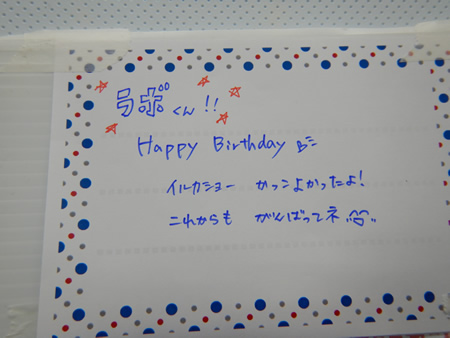 ラボくん!!
Happy Birthday
イルカショー かっこよかったよ!
これからも がんばってネ